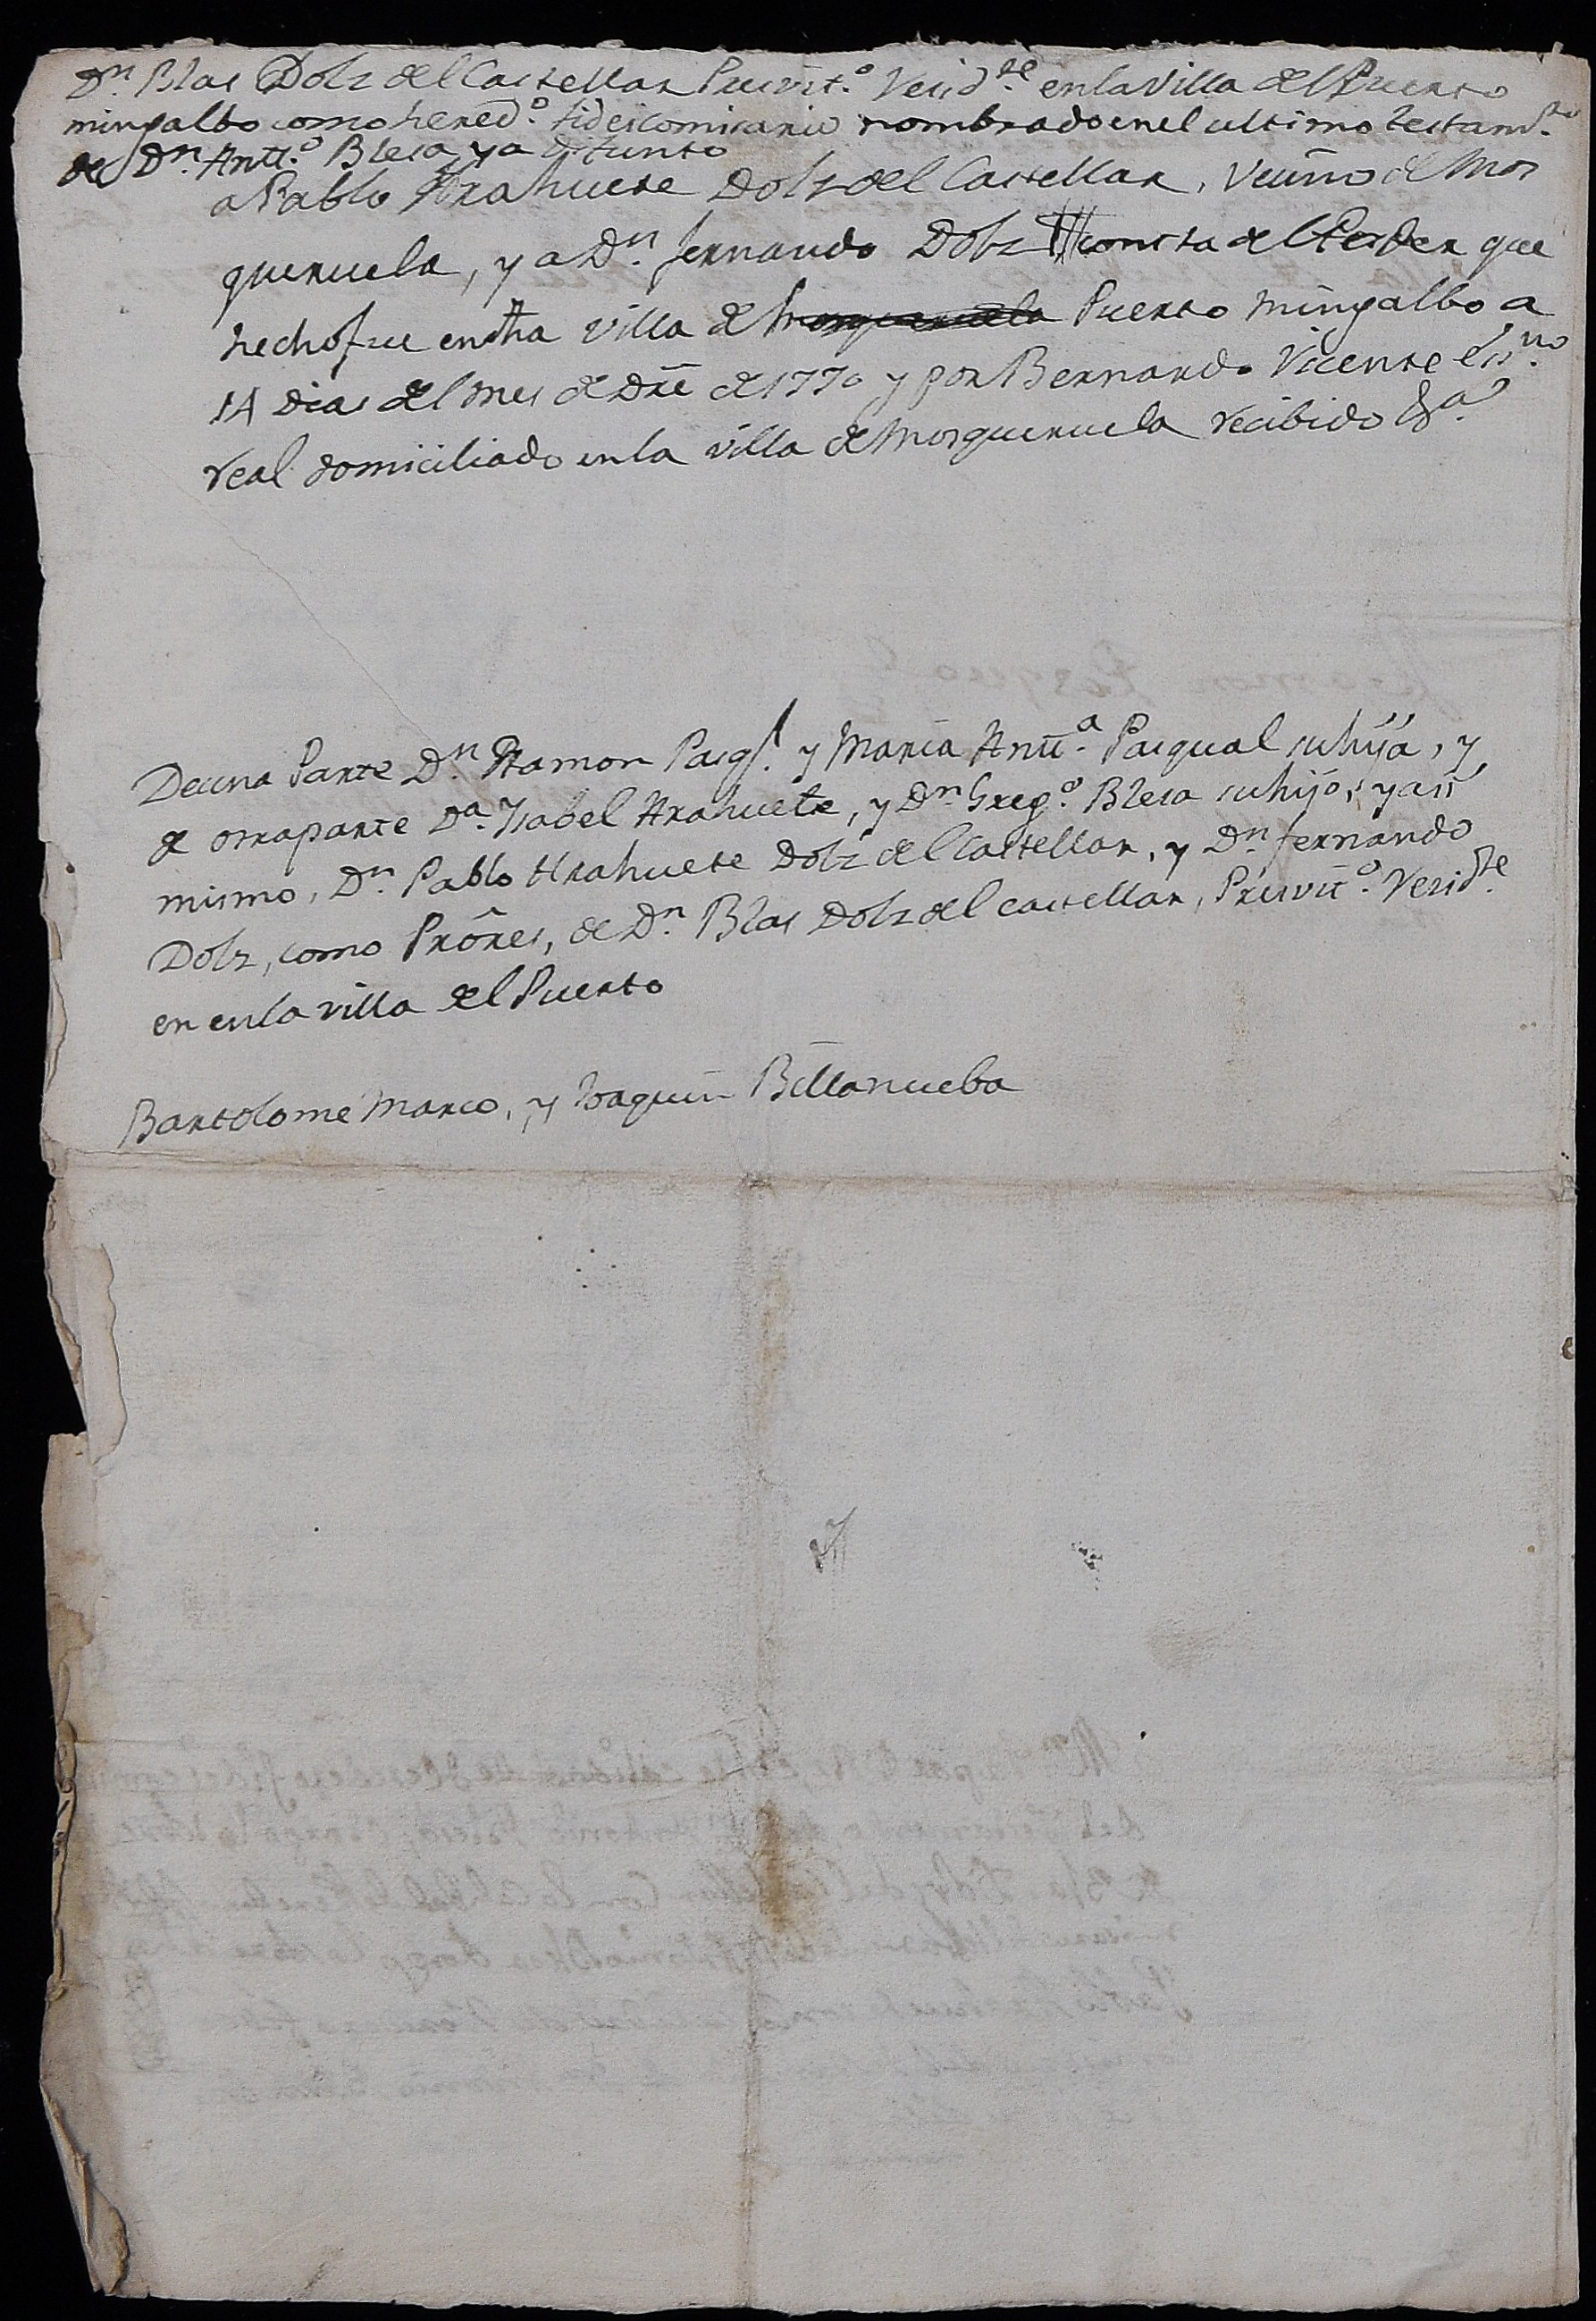 Dn. Blas Dolz del Castellar Presvit.o Resid.te en la Villa del Puerto
mingalbo como hered.o fideicomisario nombrado en el ultimo testam.to
de Dn. Antt.o Blesa ya difunto
a Pablo Arahuete Dolz del Castellar, Vecino de Mos
queruela, y a Dn. fernando Dolz consta del Poder que
hecho fue en dha villa de Mosqueruela Puerto mingalbo a
14 Dias del mes de Dre de 1770 y por Bernardo Vicente Es.no
Real domiciliado en la villa de Mosqueruela recibido &a.
De una Parte Dn. Ramon Pasql. y Maria Antt.a Pasqual su hija, y
de otra parte Da. Ysabel Arahuete, y Dn. Greg.o Blesa su hijo, y assi
mismo, Dn. Pablo Arahuete Dolz del Castellar, y Dn. fernando
Dolz, como Prôres, de Dn. Blas Dolz del castellar, Presvit.o Resid.te
en en la villa del Puerto
Bartolome Marco, y Joaquin Billanueba